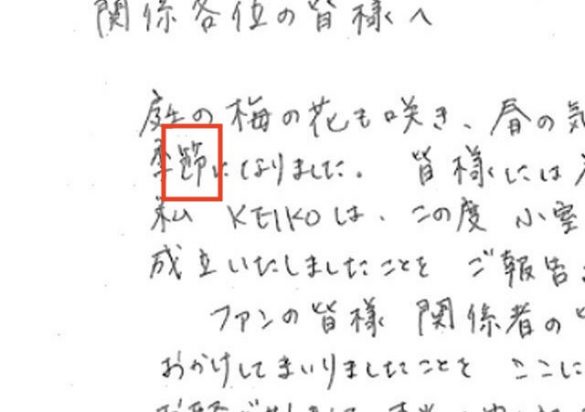 関係各位の皆様へ
庭の梅の花も咲き、春の気
季節になりました。 皆様には
私 KEIKOは、この度 小室
成立いたしましたことを ご報告
ファンの皆様 関係者の
おかけしてまいりましたことを ここに